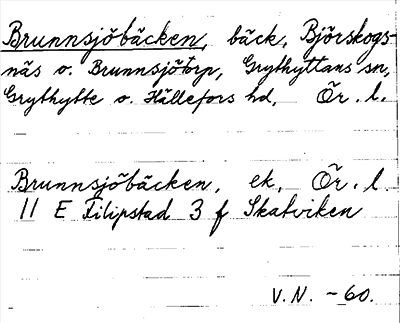 Brunnsjöbäcken, bäck, Björskogs-
näs o. Brunnsjötorp, Grythyttans sn,
Grythytte o. Hällefors hd, Ör. l.
Brunnsjöbäcken, ek, Ör. l.
11 E Filipstad 3 f Skatviken
V.N. -60.